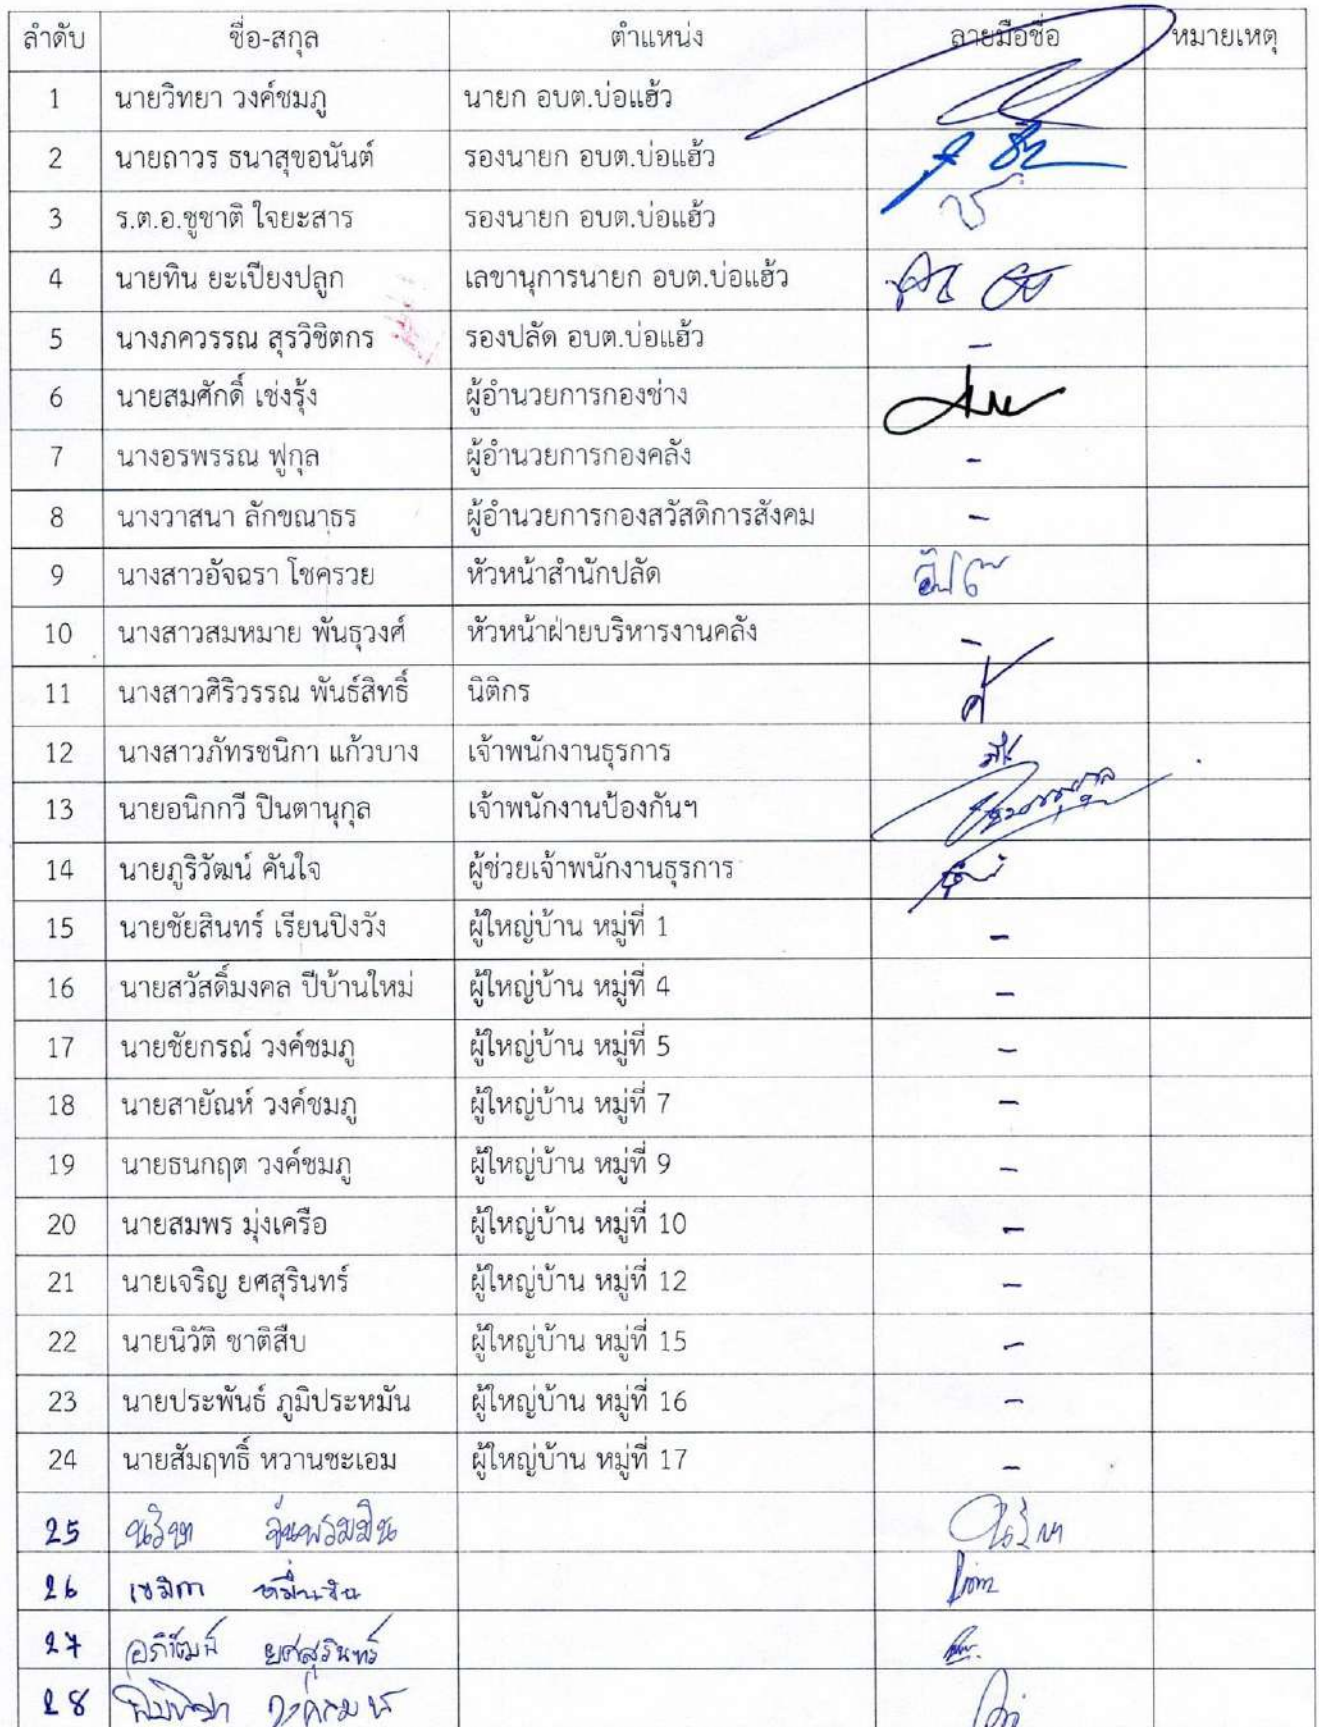 ลำดับ ชื่อ-สกุล ตำแหน่ง ลายมือชื่อ หมายเหตุ
1 นายวิทยา วงค์ชมภู นายก อบต.บ่อแฮ้ว
2 นายถาวร ธนาสุขอนันต์ รองนายก อบต.บ่อแฮ้ว
3 ร.ต.อ.ชูชาติ ใจยะสาร รองนายก อบต.บ่อแฮ้ว
4 นายทิน ยะเปียงปลูก เลขานุการนายก อบต.บ่อแฮ้ว
5 นางภควรรณ สุรวิชิตกร รองปลัด อบต.บ่อแฮ้ว -
6 นายสมศักดิ์ เช่งรุ้ง ผู้อำนวยการกองช่าง
7 นางอรพรรณ ฟูกุล ผู้อำนวยการกองคลัง -
8 นางวาสนา ลักขณาธร ผู้อำนวยการกองสวัสดิการสังคม -
9 นางสาวอัจฉรา โชครวย หัวหน้าสำนักปลัด
10 นางสาวสมหมาย พันธุวงศ์ หัวหน้าฝ่ายบริหารงานคลัง -
11 นางสาวศิริวรรณ พันธ์สิทธิ์ นิติกร
12 นางสาวภัทรชนิกา แก้วบาง เจ้าพนักงานธุรการ
13 นายอนิกกวี ปินตานุกูล เจ้าพนักงานป้องกันฯ
14 นายภูริวัฒน์ คันใจ ผู้ช่วยเจ้าพนักงานธุรการ
15 นายชัยสินทร์ เรียนปิงวัง ผู้ใหญ่บ้าน หมู่ที่ 1 -
16 นายสวัสดิ์มงคล ปีบ้านใหม่ ผู้ใหญ่บ้าน หมู่ที่ 4 -
17 นายชัยกรณ์ วงค์ชมภู ผู้ใหญ่บ้าน หมู่ที่ 5 -
18 นายสายัณห์ วงค์ชมภู ผู้ใหญ่บ้าน หมู่ที่ 7 -
19 นายธนกฤต วงค์ชมภู ผู้ใหญ่บ้าน หมู่ที่ 9 -
20 นายสมพร มุ่งเครือ ผู้ใหญ่บ้าน หมู่ที่ 10 -
21 นายเจริญ ยศสุรินทร์ ผู้ใหญ่บ้าน หมู่ที่ 12 -
22 นายนิวัติ ชาติสืบ ผู้ใหญ่บ้าน หมู่ที่ 15 -
23 นายประพันธ์ ภูมิประหมัน ผู้ใหญ่บ้าน หมู่ที่ 16 -
24 นายสัมฤทธิ์ หวานชะเอม ผู้ใหญ่บ้าน หมู่ที่ 17 -
25
26
27 ยศสุรินทร์
28